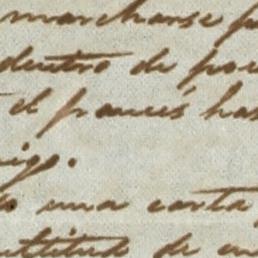 marcharse p
dentro de po
el francés has
igo.
o una carta
titud de